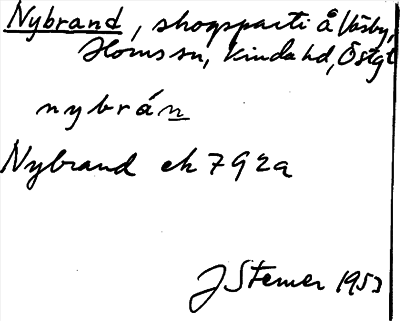 Nybrand, skogsparti å Väsby,
Horns sn, Kinda hd, Östgt
nybrán
Nybrand ek 7 9 2a
J Sterner 1953